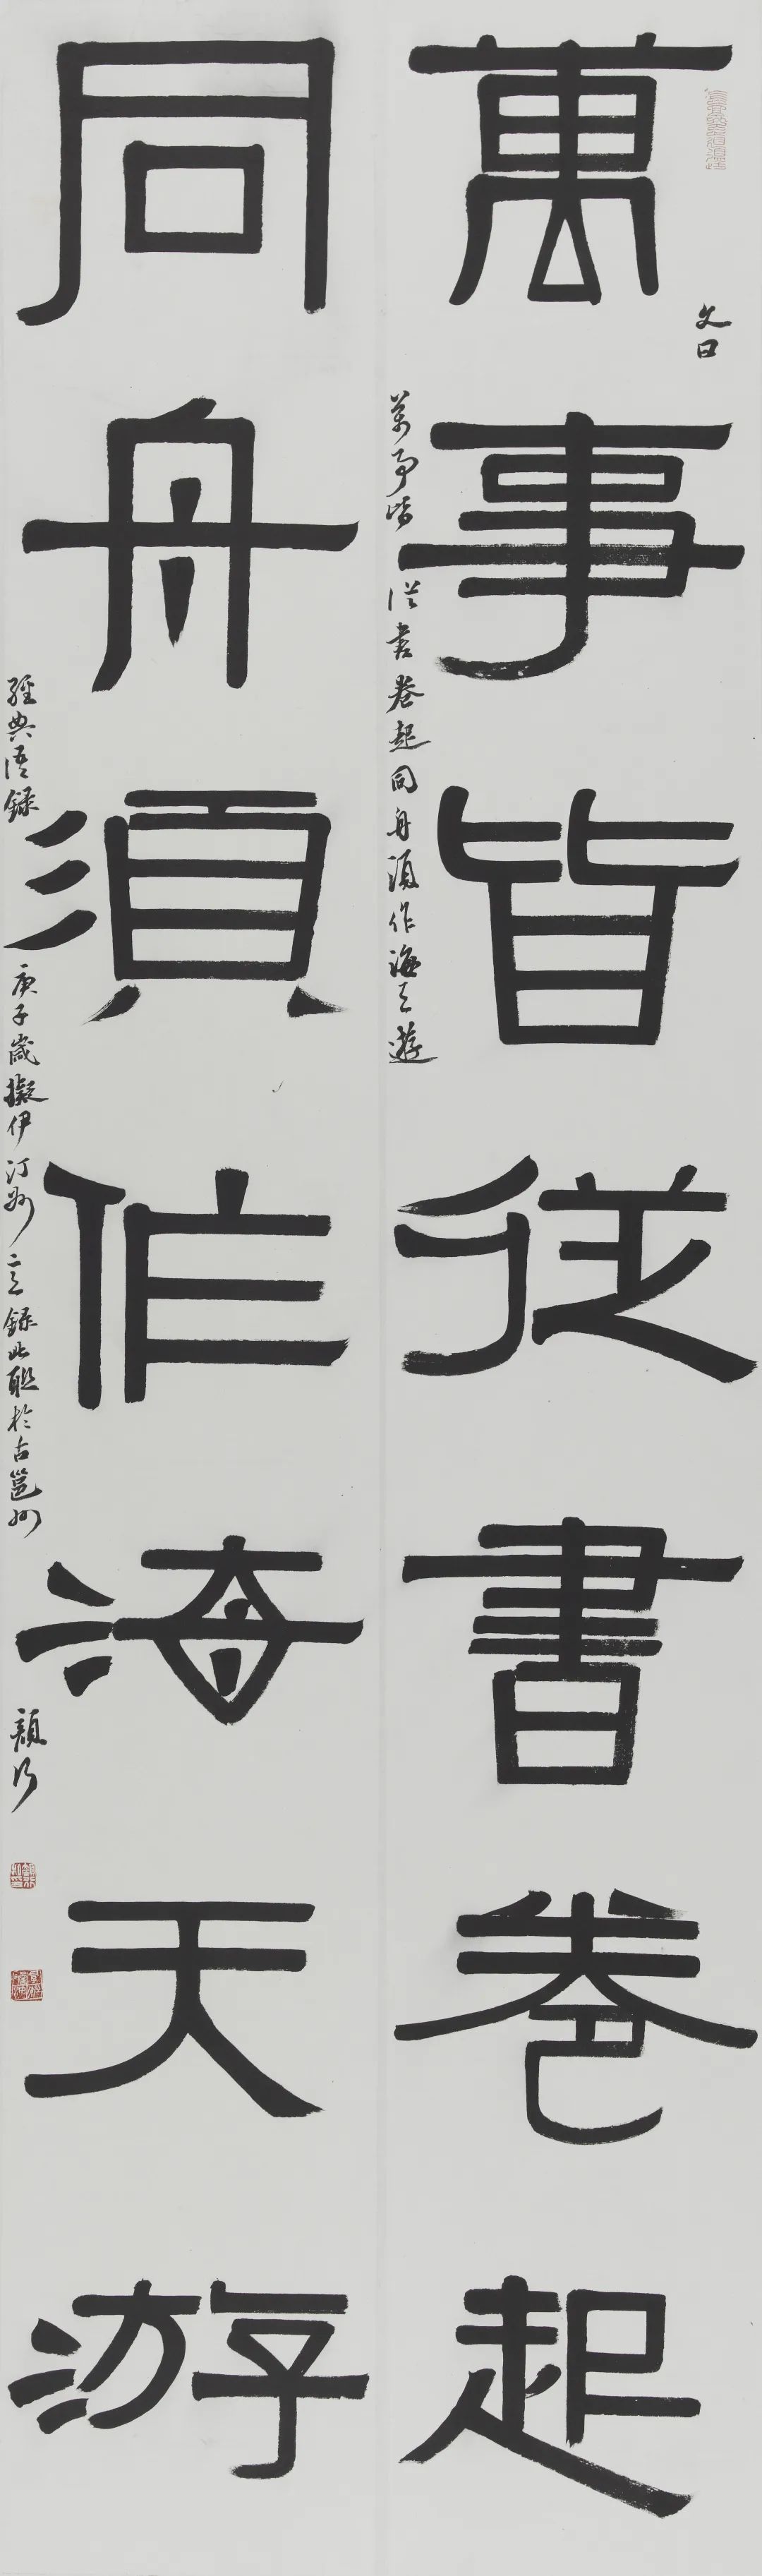 萬事皆從書卷起
文曰
萬事皆從書卷起同舟須作海天遊
同舟須作海天游
經典語錄
庚子歲擬伊汀州意錄此聯於古邕州